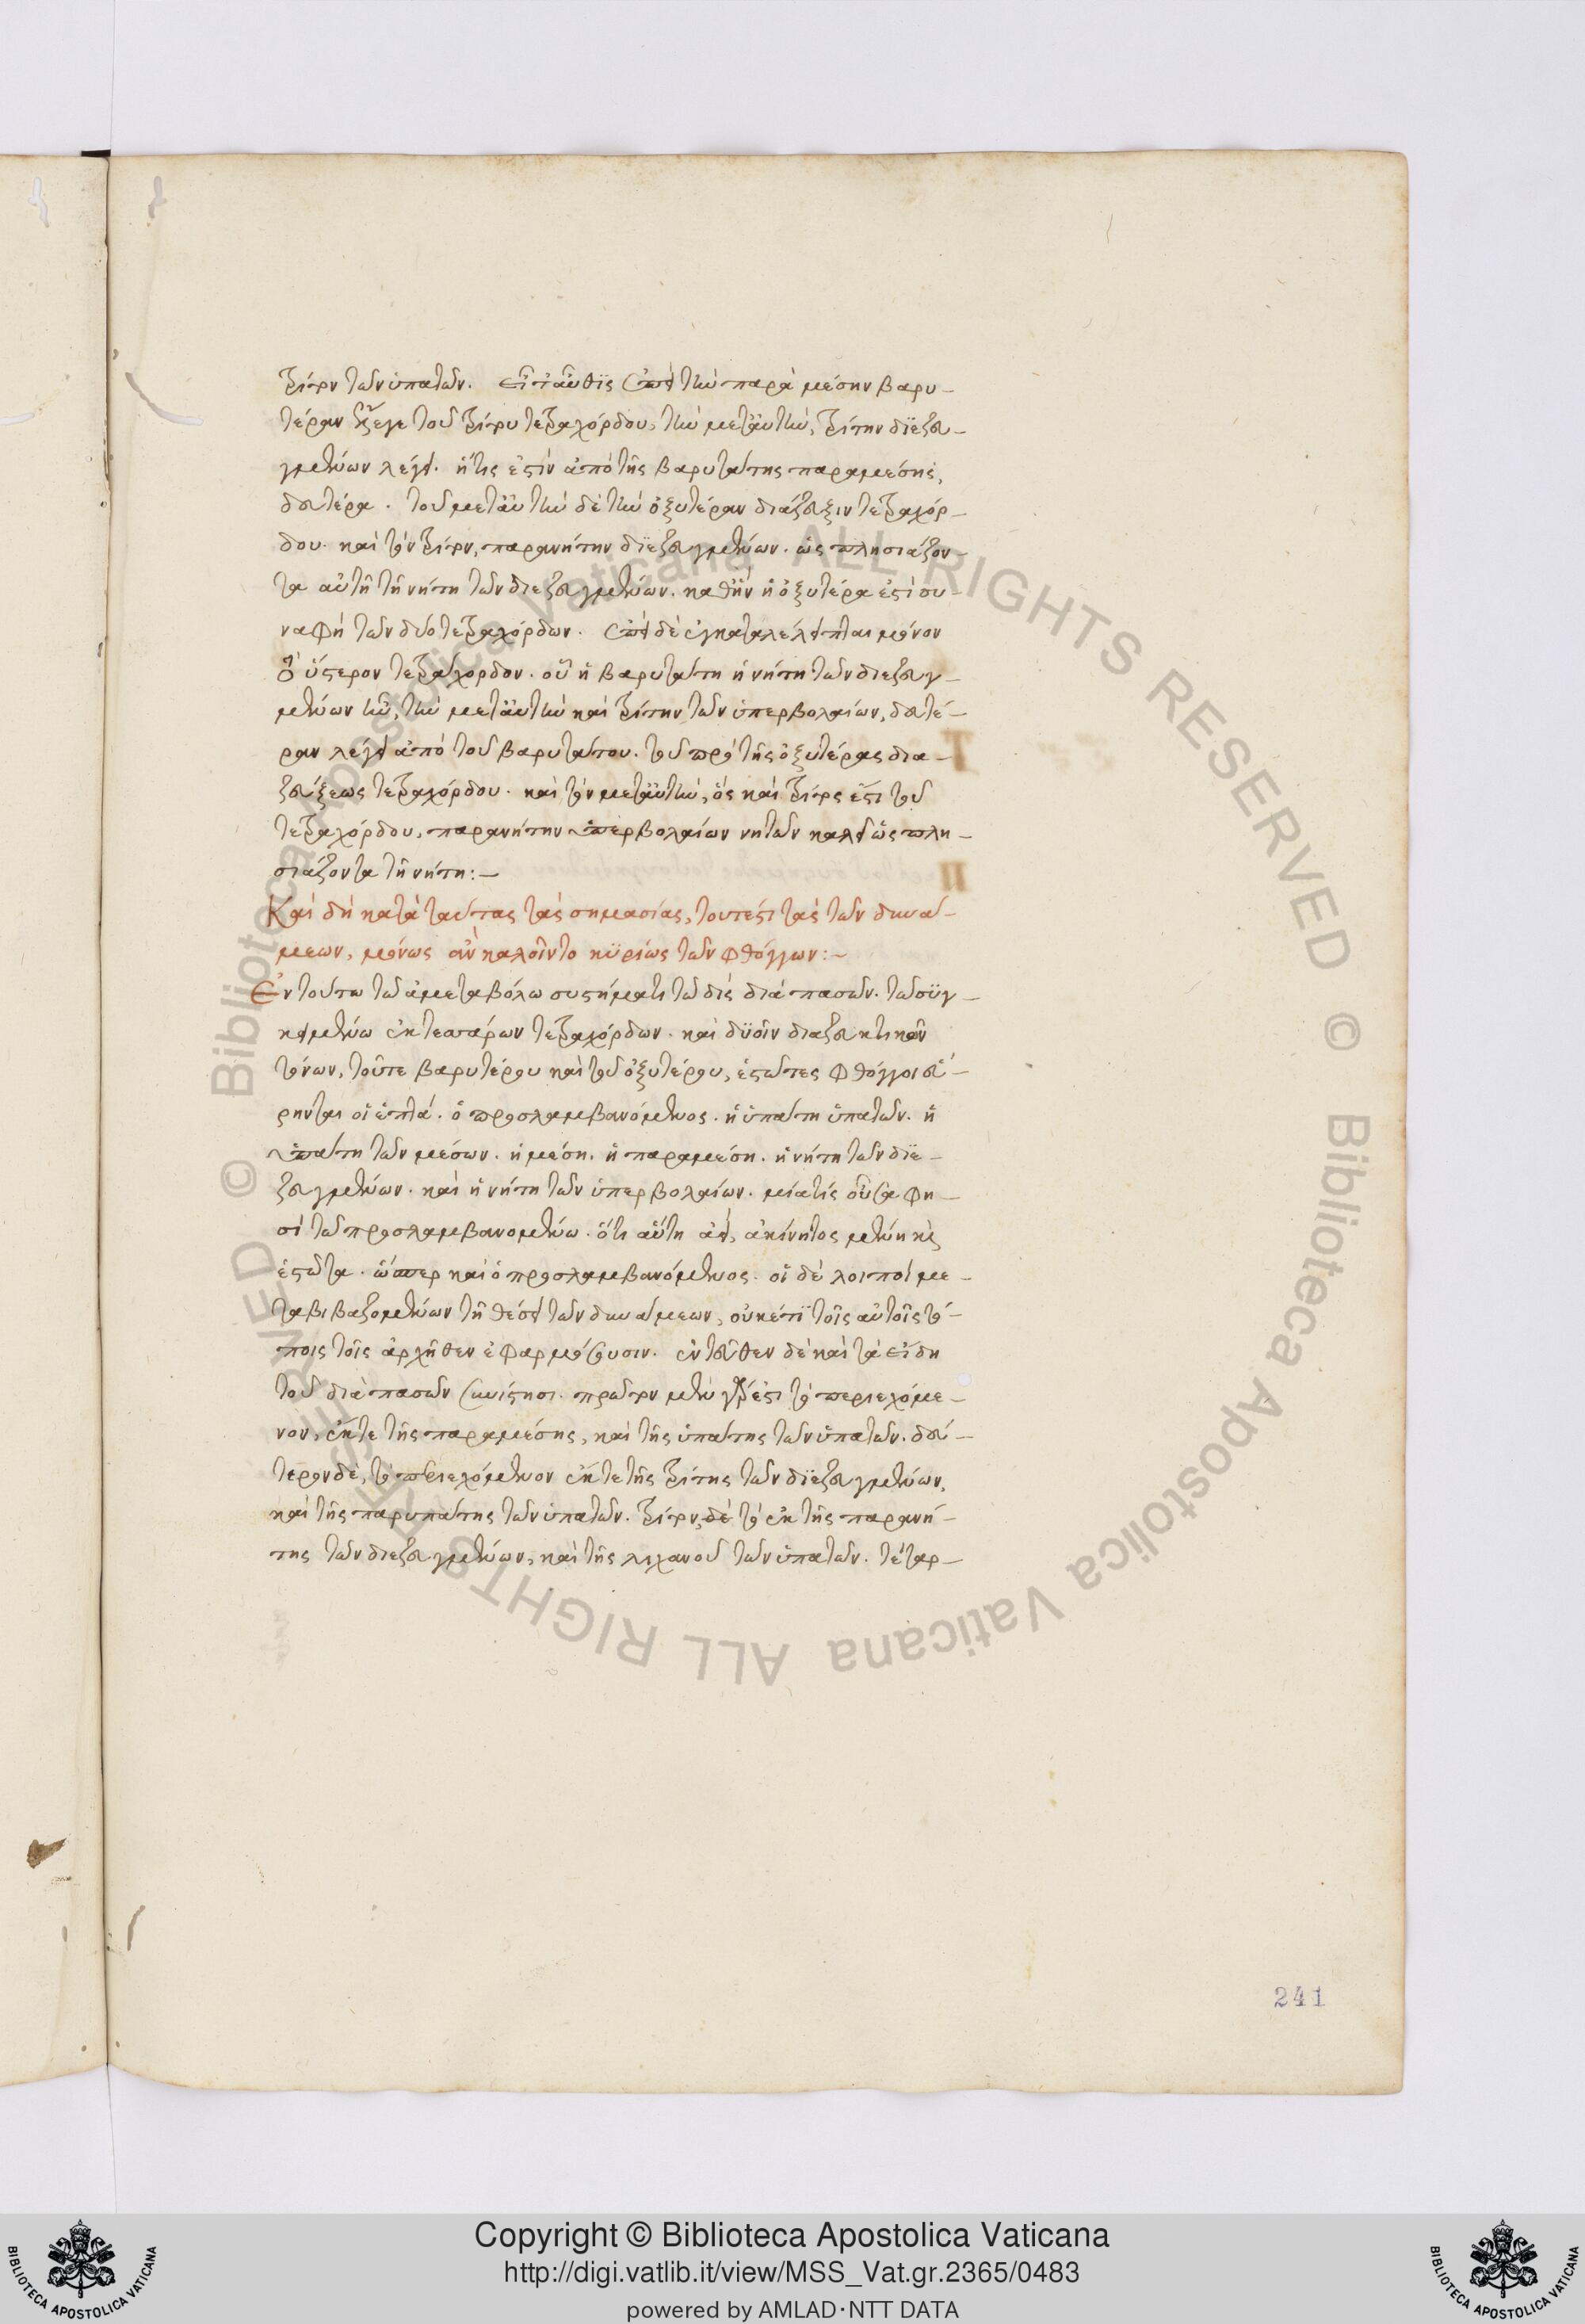 τρίτον τῶν ὑπατῶν. εἶτ' αὖθϊς ἐπεὶ τὴν παρὰ μέσην βαρυ-
τέραν ἔλεγε τοῦ τρίτου τετραχόρδου, τὴν μετ' αὐτὴν, τρίτην διεζευ-
γμένων λέγει. ἥτις ἐστὶν ἀπὸ τῆς βαρυτάτης παραμέσης,
δευτέρα. τοῦ μετ' αὐτὴν δὲ τὴν ὀξυτέραν διάζευξιν τετραχόρ-
δου. καὶ τὸν τρίτον, παρανήτην διεζευγμένων. ὡς πλησιάζον-
τα αὐτῆ τῆ νήτη τῶν διεζευγμένων. καθ' ἣν ἡ ὀξυτέρα ἐστὶ συ-
ναφὴ τῶν δύο τετραχόρδων. ἐπεὶ δὲ ἐγκαταλέλειπται μόνον
τὸ ὕστερον τετράχορδον. οὗ ἡ βαρυτάτη ἡ νήτη τῶν διεζευγ-
μένων ἦν, τὴν μετ' αὐτὴν καὶ τρίτην τῶν ὑπερβολαίων, δευτέ-
ραν λέγει ἀπὸ τοῦ βαρυτάτου. τοῦ πρὸ τῆς ὀξυτέρας δια-
ζεύξεως τετραχόρδου. καὶ τὸν μετ' αὐτὴν, ὃς καὶ τρίτος ἐστὶ τοῦ
τετραχόρδου, παρανήτην ὑπερβολαίων νητῶν καλεῖ ὡς πλη-
σιάζοντα τῆ νήτη:-
Καὶ δὴ κατὰ ταύτας τὰς σημασίας, τουτέστι τὰς τῶν δυνά-
μεων, μόνως ἂν καλοῖντο κϋρίως τῶν φθόγγων:-
Ἐν τούτω τῶ ἀμεταβόλω συστήματι τῶ δὶς διὰ πασῶν. τῶ συγ-
κειμένω ἐκ τεσσάρων τετραχόρδων. καὶ δυοῖν διαζευκτικῶν
τόνων, τοῦτε βαρυτέρου καὶ τοῦ ὀξυτέρου, ἑστῶτες φθόγγοι εὕ-
ρηνται οἱ ἑπτά. ὁ προσλαμβανόμενος. ἡ ὑπάτη ὑπατῶν. ἡ
ὑπάτη τῶν μέσων. ἡ μέση. ἡ παραμέση. ἡ νήτη τῶν διε-
ζευγμένων. καὶ ἡ νήτη τῶν ὑπερβολαίων. μία τίς οὖσα φη-
σὶ τῶ προσλαμβανομένω. ὅτι αὕτη ἀεὶ, ἀκίνητος μένη καὶ
ἑστῶτα. ὥσπερ καὶ ὁ προσλαμβανόμενος. οἱ δὲ λοιποὶ με-
ταβιβαζομένων τῆ θέσει τῶν δυνάμεων, οὐκέτϊ τοῖς αὐτοῖς τό-
ποις τοῖς ἀρχῆθεν ἐφαρμόζουσιν. ἐντεῦθεν δὲ καὶ τὰ εἴδη
τοῦ διὰ πασῶν συνίστησι. πρῶτον μὲν γάρ ἐστι τὸ περιεχόμε-
νον, ἔκτε τῆς παραμέσης, καὶ τῆς ὑπάτης τῶν ὑπατῶν. δεύ-
τερον δὲ, τὸ περιεχόμενον ἔκτε τῆς τρίτης τῶν διεζευγμένων,
καὶ τῆς παρυπάτης τῶν ὑπατῶν. τρίτον, δὲ τὸ ἐκ τῆς παρανή-
της τῶν διεζευγμένων, καὶ τῆς λιχανοῦ τῶν ὑπατῶν. τέταρ-
241
Copyright © Biblioteca Apostolica Vaticana
http://digi.vatlib.it/view/MSS_Vat.gr.2365/0483
powered by AMLAD·NTT DATA